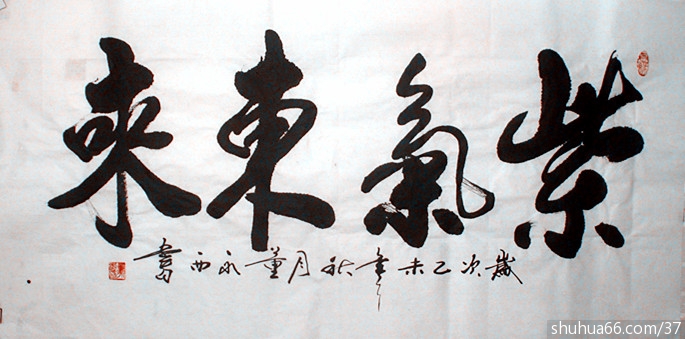 紫氣東來
歲次乙未年秋月董永西書
shuhua66.com/37